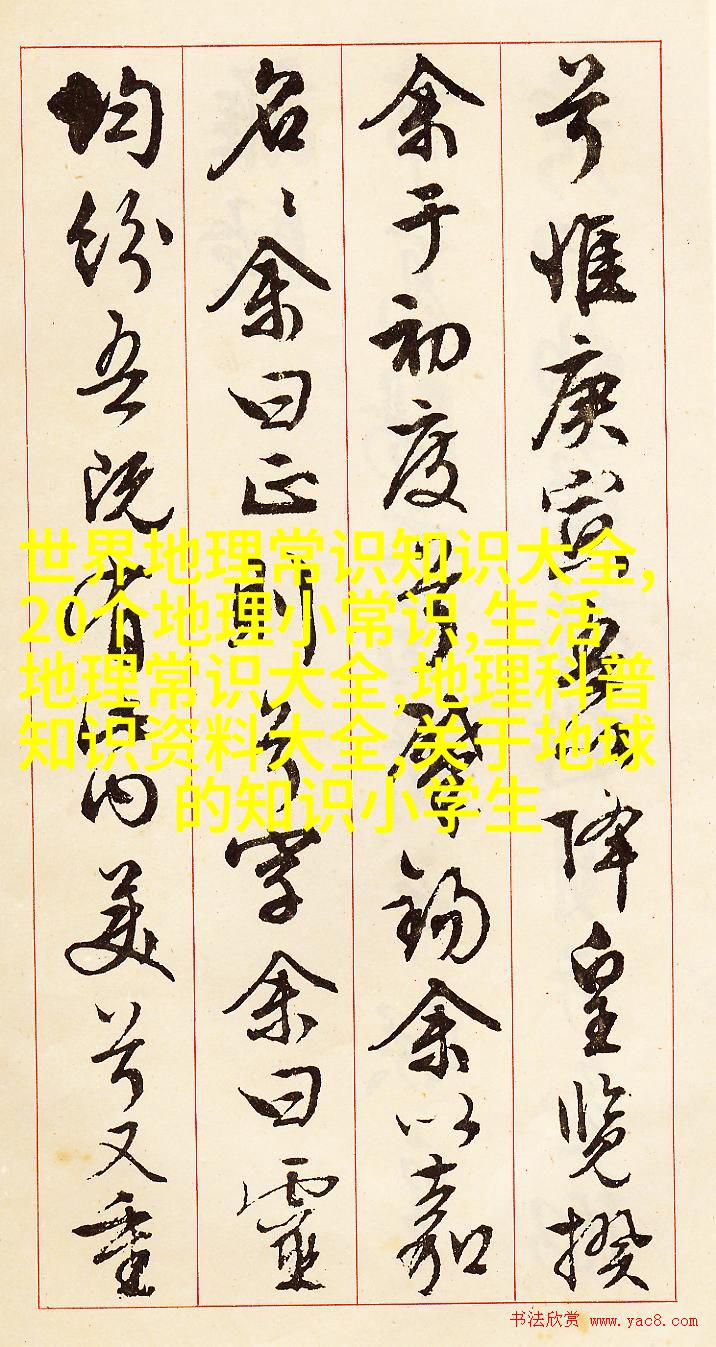 兮惟庚寅吾以降皇覽揆
余于初度兮肇錫余以嘉
名〻余曰正則兮字余曰靈
均紛吾既有此内美兮又重
世界地理常识知识大全,
20个地理小常识,生活
地理常识大全,地理科普
知识资料大全,关于地球
的知识小学生
书法欣赏 www.yac8.com